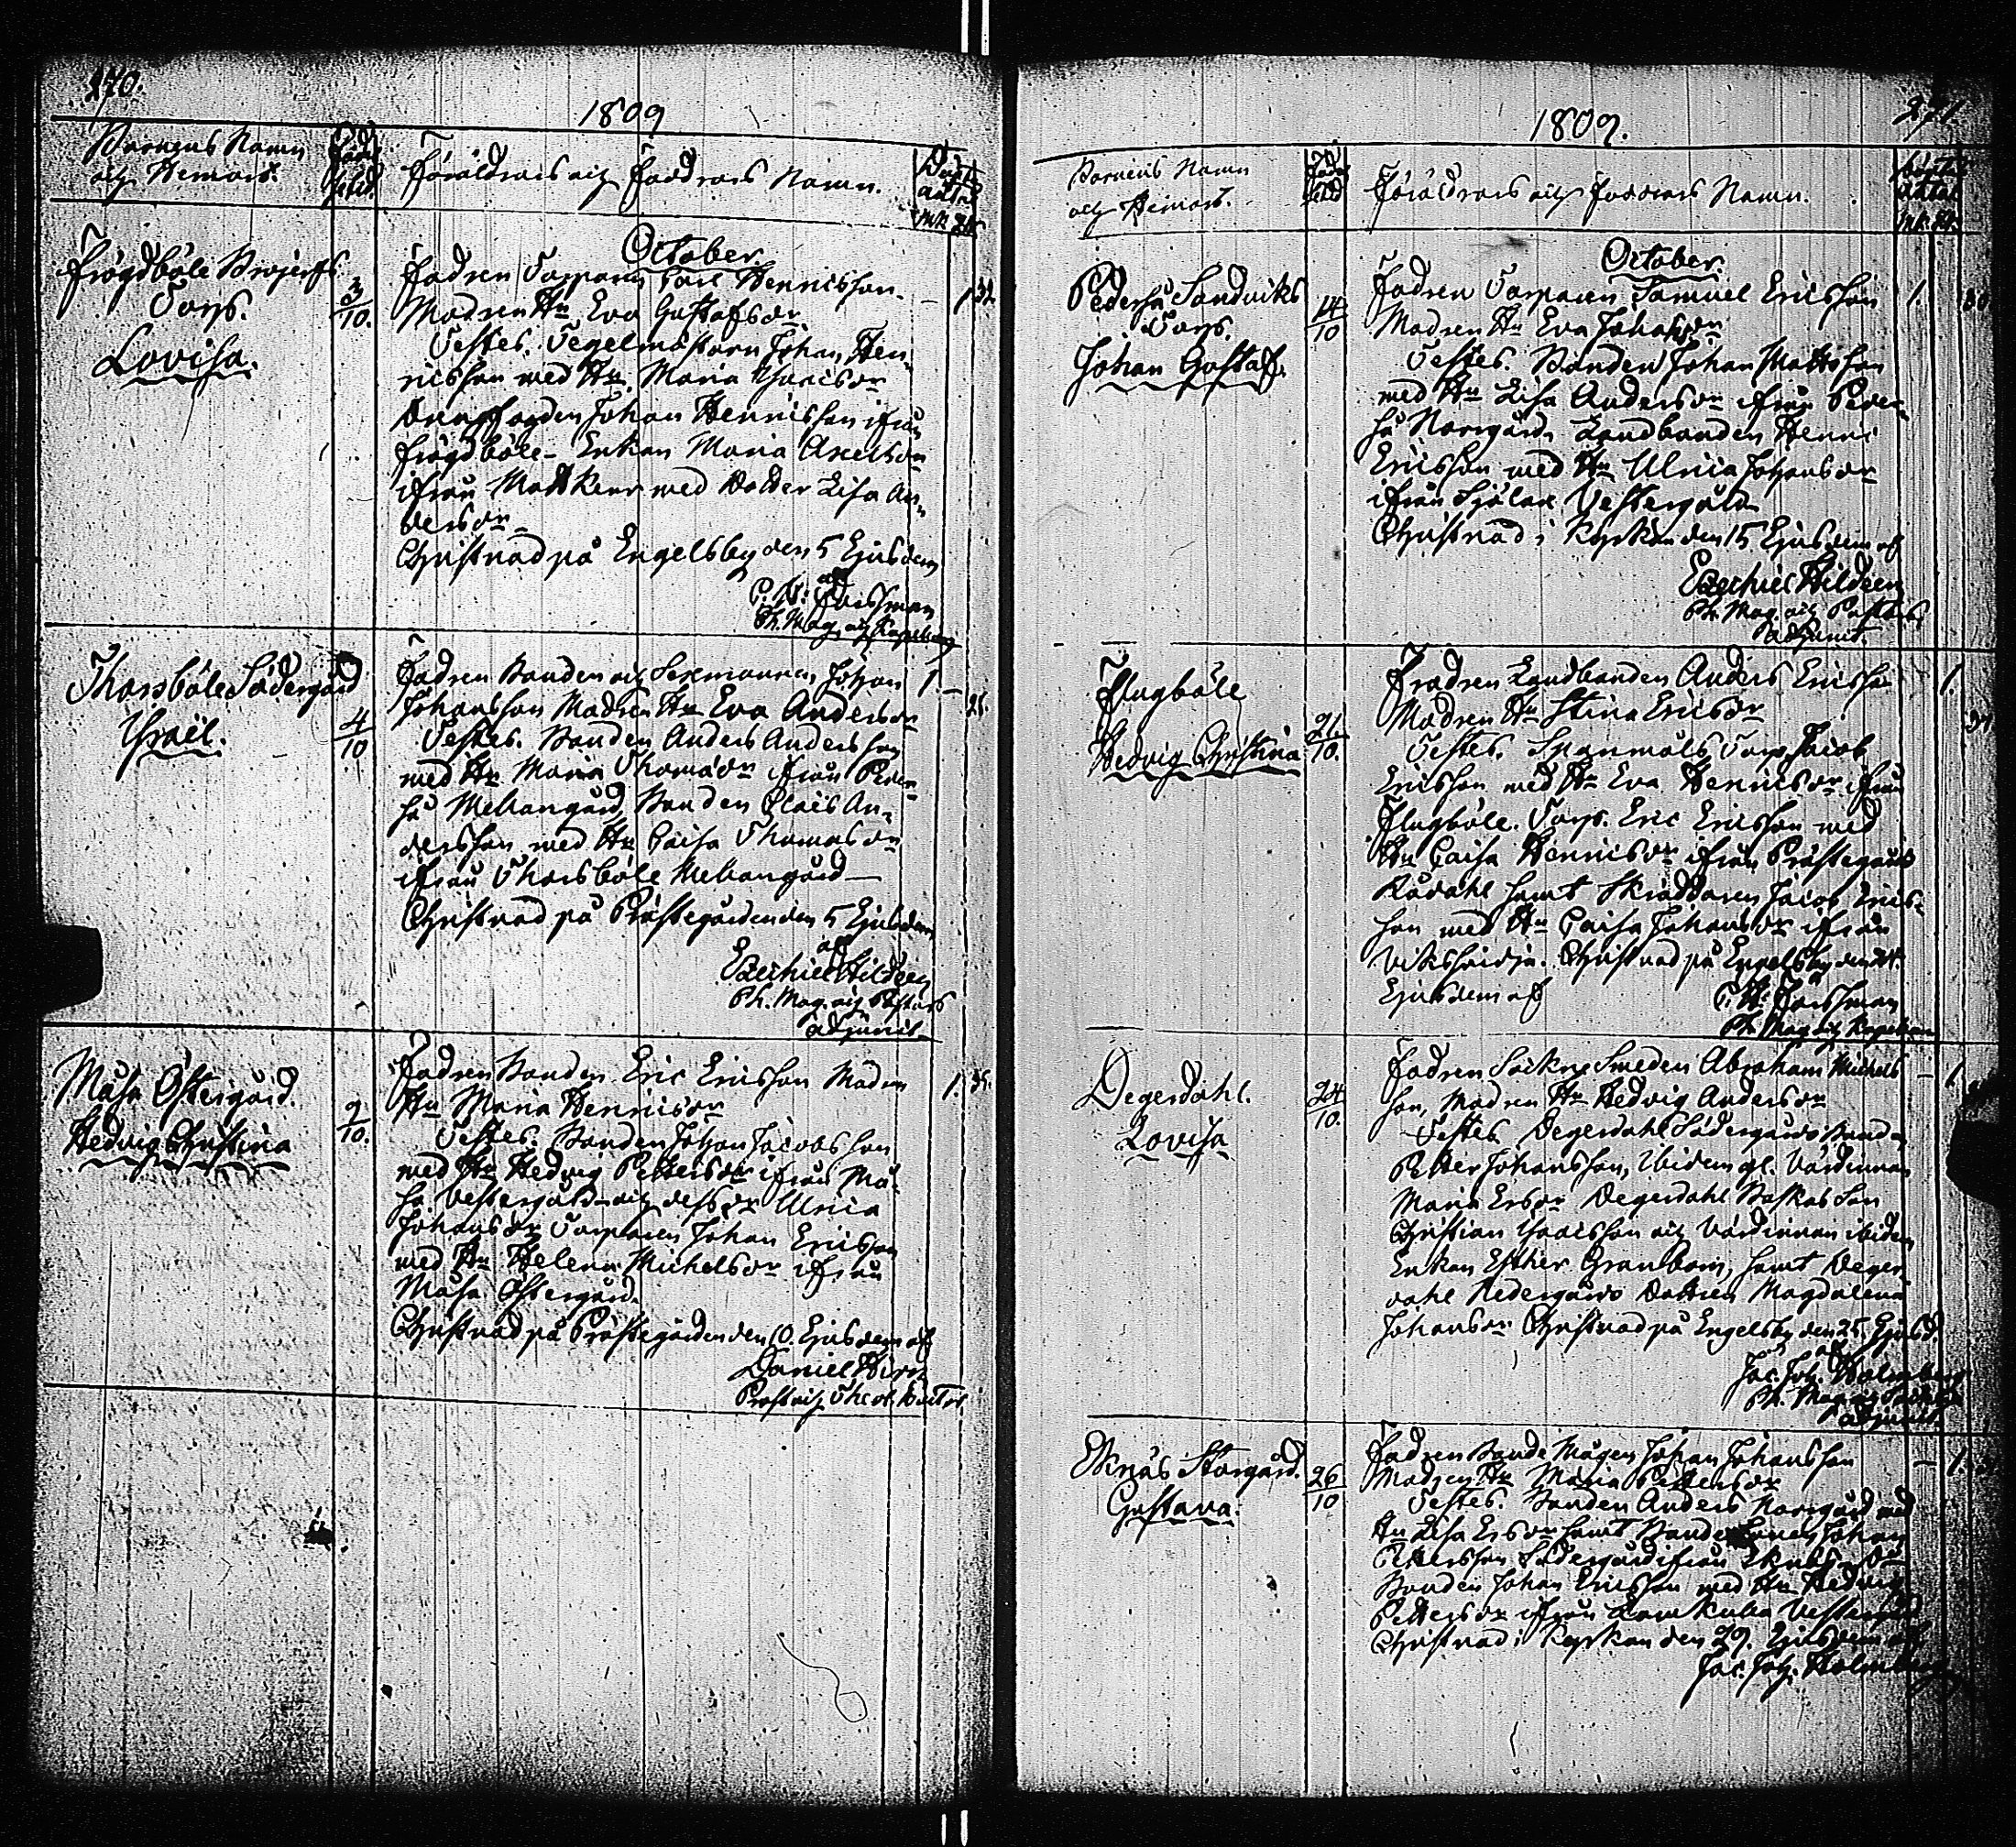 270.
1809
Barnens Namn
och Hemort.
Föd.
tid.
Föräldrars och Faddrars Namn.
October
Frögdböle
Torp.
Lovisa.
3/10.
Fadren Torparen Carl Henricsson.
Modren Hu Eva Gustafsdr
Testes. Tegelmästarn Johan Hen-
ricsson med Hu Maria Isacsdr
Johan Henricsson ifrån
Frögdböle - Enkan Maria Axelsdr
ifrån med Dotter Lisa An-
dersdr
Christnad på Engelsby den 5 Ejusdem
af
Forssman
Ph. Mag. och Kapellan
Thorsböle Södergård
Israël.
4/10
Fadren Bonden och Sexmannen Johan
Johansson Modren Hu Eva Andersdr
Testes. Bonden Anders Andersson
med Hu Maria Thomasdr ifrån Peder-
så Mellangård, Bonden Clas An-
dersson med Hu Caisa Thomasdr
ifrån Thorsböle Mellangård
Christnad på Prästegården den 5 Ejusdem
af
Ezechiel Hildeen
Ph. Mag. och Pastors
adjunct.
1.
Måsa Östergård.
Hedvig Christina
9/10.
Fadren Bonden Eric Ericsson Modren
Hu Maria Henricsdr
Testes. Bonden Johan Jacobsson
med Hu Hedvig Pettersdr ifrån Må-
sa Vestergård och dess dr Ulrica
Johansdr Torparen Johan Ericsson
med Hu Helena Michelsdr ifrån
Måsa Östergård.
Christnad på Prästegården den 10. Ejusdem af
Daniel Hirn
Prost och Theol. Doctor
1.
271.
1809.
Barnens Namn
och Hemort.
Föd.
tid
Föräldrars och Faddrars Namn.
October.
Pederså Sandviks
Torp.
Johan Gustaf.
14/10
Fadren Torparen Samuel Ericsson
Modren Hu Eva Johansdr
Testes. Bonden Johan Mattsson
med Hu Lisa Andersdr ifrån Peder-
så Norrgård. Landbonden Henric
Ericsson med Hu Ulrica Johansdr
ifrån Sjölax Vestergård
Christnad i Kyrkan den 15 Ejusdem af
Ezechiel Hildeen
Ph. Mag. och Pastors
adjunct.
1.
Flugböle
Hedvig Christina
21/10.
Fadren Landbonden Anders Ericsson
Modren Hu Stina Ericsdr
Testes. Torp. Jacob
Ericsson med Hu Eva Henricsdr ifrån
Flugböle. Torp. Eric Ericsson med
Hu Caisa Henricsdr ifrån Prästegårds
Rådahl samt Skräddaren Jacob Erics-
son med Hu Caisa Johansdr ifrån
Christnad på Engelsby den
Ejusdem af
Forssman
Ph. Mag. och Kapellan
1.
Degerdahl.
Lovisa
24/10.
Fadren Sockne Smeden Abraham Michels-
son, Modren Hu Hedvig Andersdr
Testes Degerdahl Södergårds Bonde
Petter Johansson, Ibidem gl. Värdinnan
Maria Ersdr Degerdahl Son
Christian Isacsson och Värdinnan ibidem
Enkan Esther Granbom, samt Deger-
dahl Nedergårds Dottren Magdalena
Johansdr Christnad på Engelsby den 25. Ejusd.
af
Jac. Joh. Holmberg
Ph. Mag. och
adjunct.
1.
Eknäs Storgård.
Gustava.
26/10
Fadren Bonde Mågen Johan Johansson
Modren Hu Maria Pettersdr
Testes. Bonden Anders Norrgård med
Hu Lisa Ersdr samt Bonde Sonen Johan
Pettersson Södergård ifrån
Bonden Johan Ericsson med Hu Hedvig
Pettersdr ifrån Lamkulla Vestergård
Christnad i Kyrkan den 29. Ejusdem af
Jac. Joh. Holmberg
1.